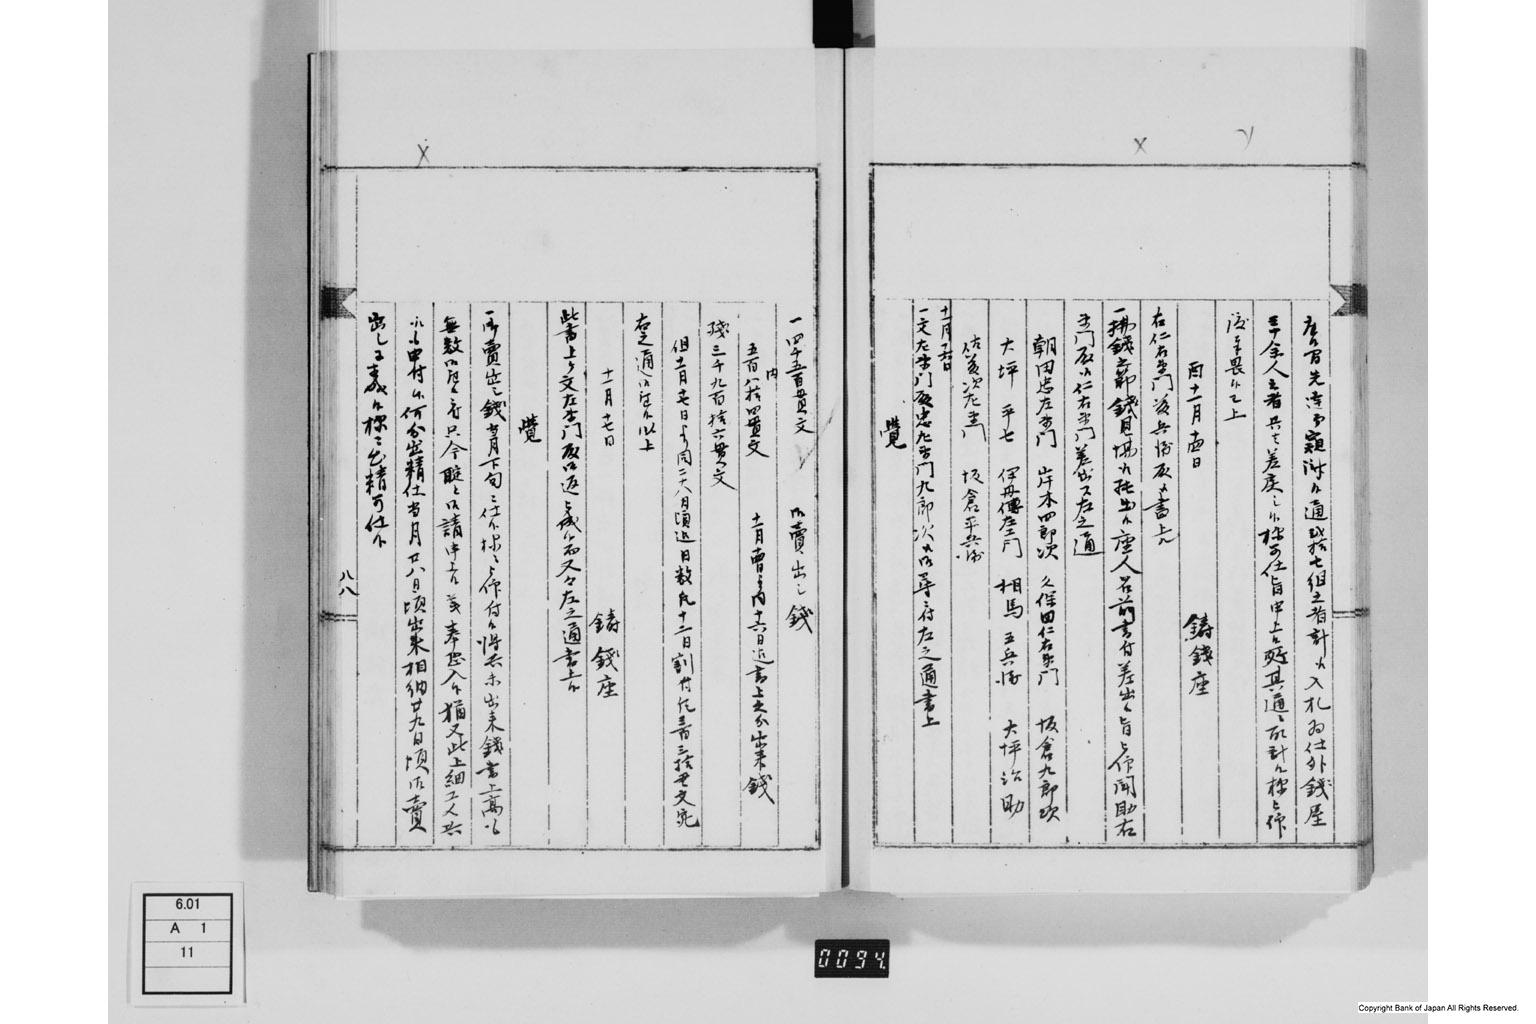 座百先達而窺附候通弐拾七組之者計ハ入札為仕外銭屋
千余人之者共者差戻シ候様可仕旨申上候処其通ニ取計候様ニ被仰
渡奉畏候已上
酉十一月四日
鋳銭座
右仁右衛門善兵衛殿ヘ書上ル
一拂銭之節銭目場ヘ能出候座人名前書付差出候旨被仰聞助右
衛門殿ヘ仁右衛門差出ス左之通
朝田忠左衛門 岸本四郎次 久保田仁右衛門 坂倉九郎次
大坪平七 伊丹傳左衛門 相馬五兵衛 大坪治助
佐善次左衛門 坂倉平兵衛
十一月十六日
一文左衛門殿忠左衛門九郎次ヘ御尋ニ付左之通書上
覚
一四千五百貫文 御賣出シ銭
内
五百八拾四貫文 十一月四日ゟ内十六日迄書上之分出来銭
残三千九百拾六貫文
但十一月十七日ゟ同廿八日頃迄日数凡十二日割付凡三百三拾貫文宛
右之通御座候以上
十一月十七日
鋳銭座
此書上ケ文左衛門殿御返シ被成候而又々左之通書上候
覚
一御賣出シ銭当月下旬ニ仕候様ニ被仰付候得共未出来銭書上高も
無数御座候ニ付只今聢と御請申上候義奉恐入候猶又此上細工人共
ヘも申付候何分出精仕当月廿八日頃出来相納廿九日頃御賣
出シニ成候様ニ出精可仕候
八八
6.01
A 1
11
0094
Copyright Bank of Japan All Rights Reserved.